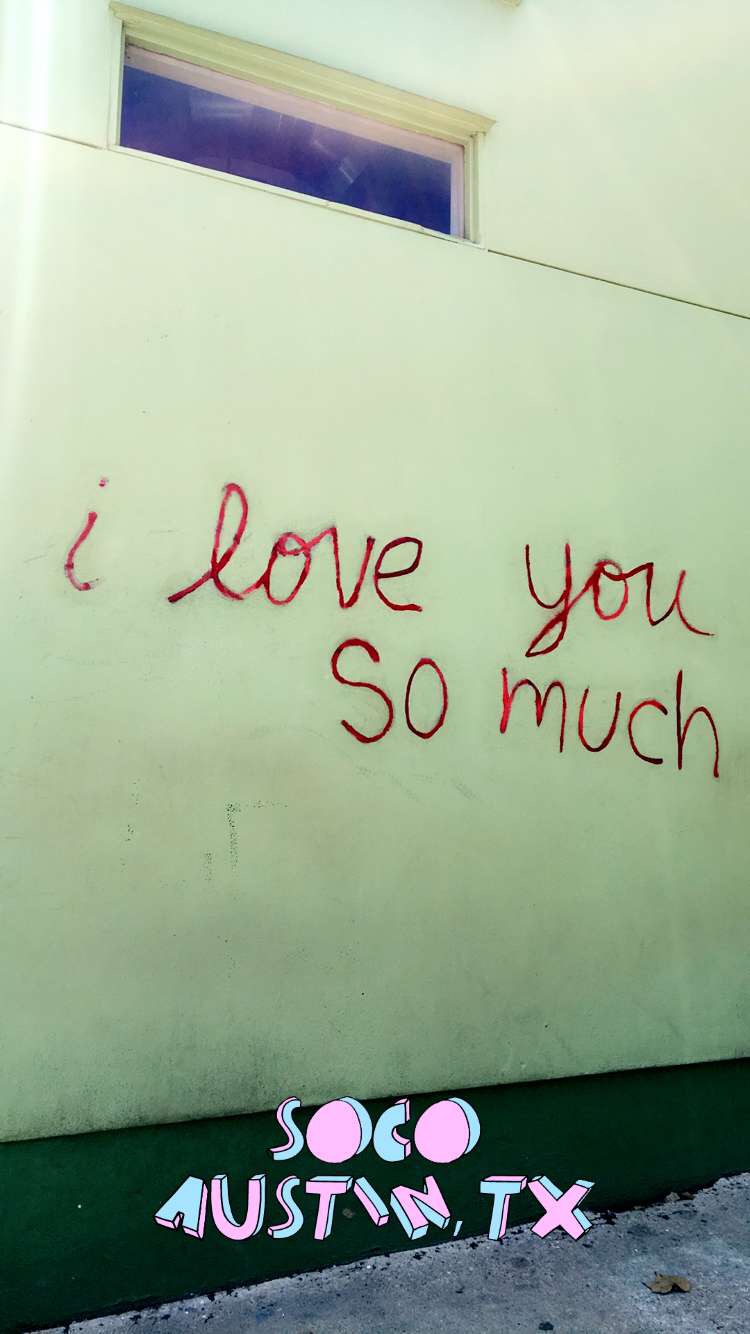 i love you
so much
SOCO
AUSTIN, TX